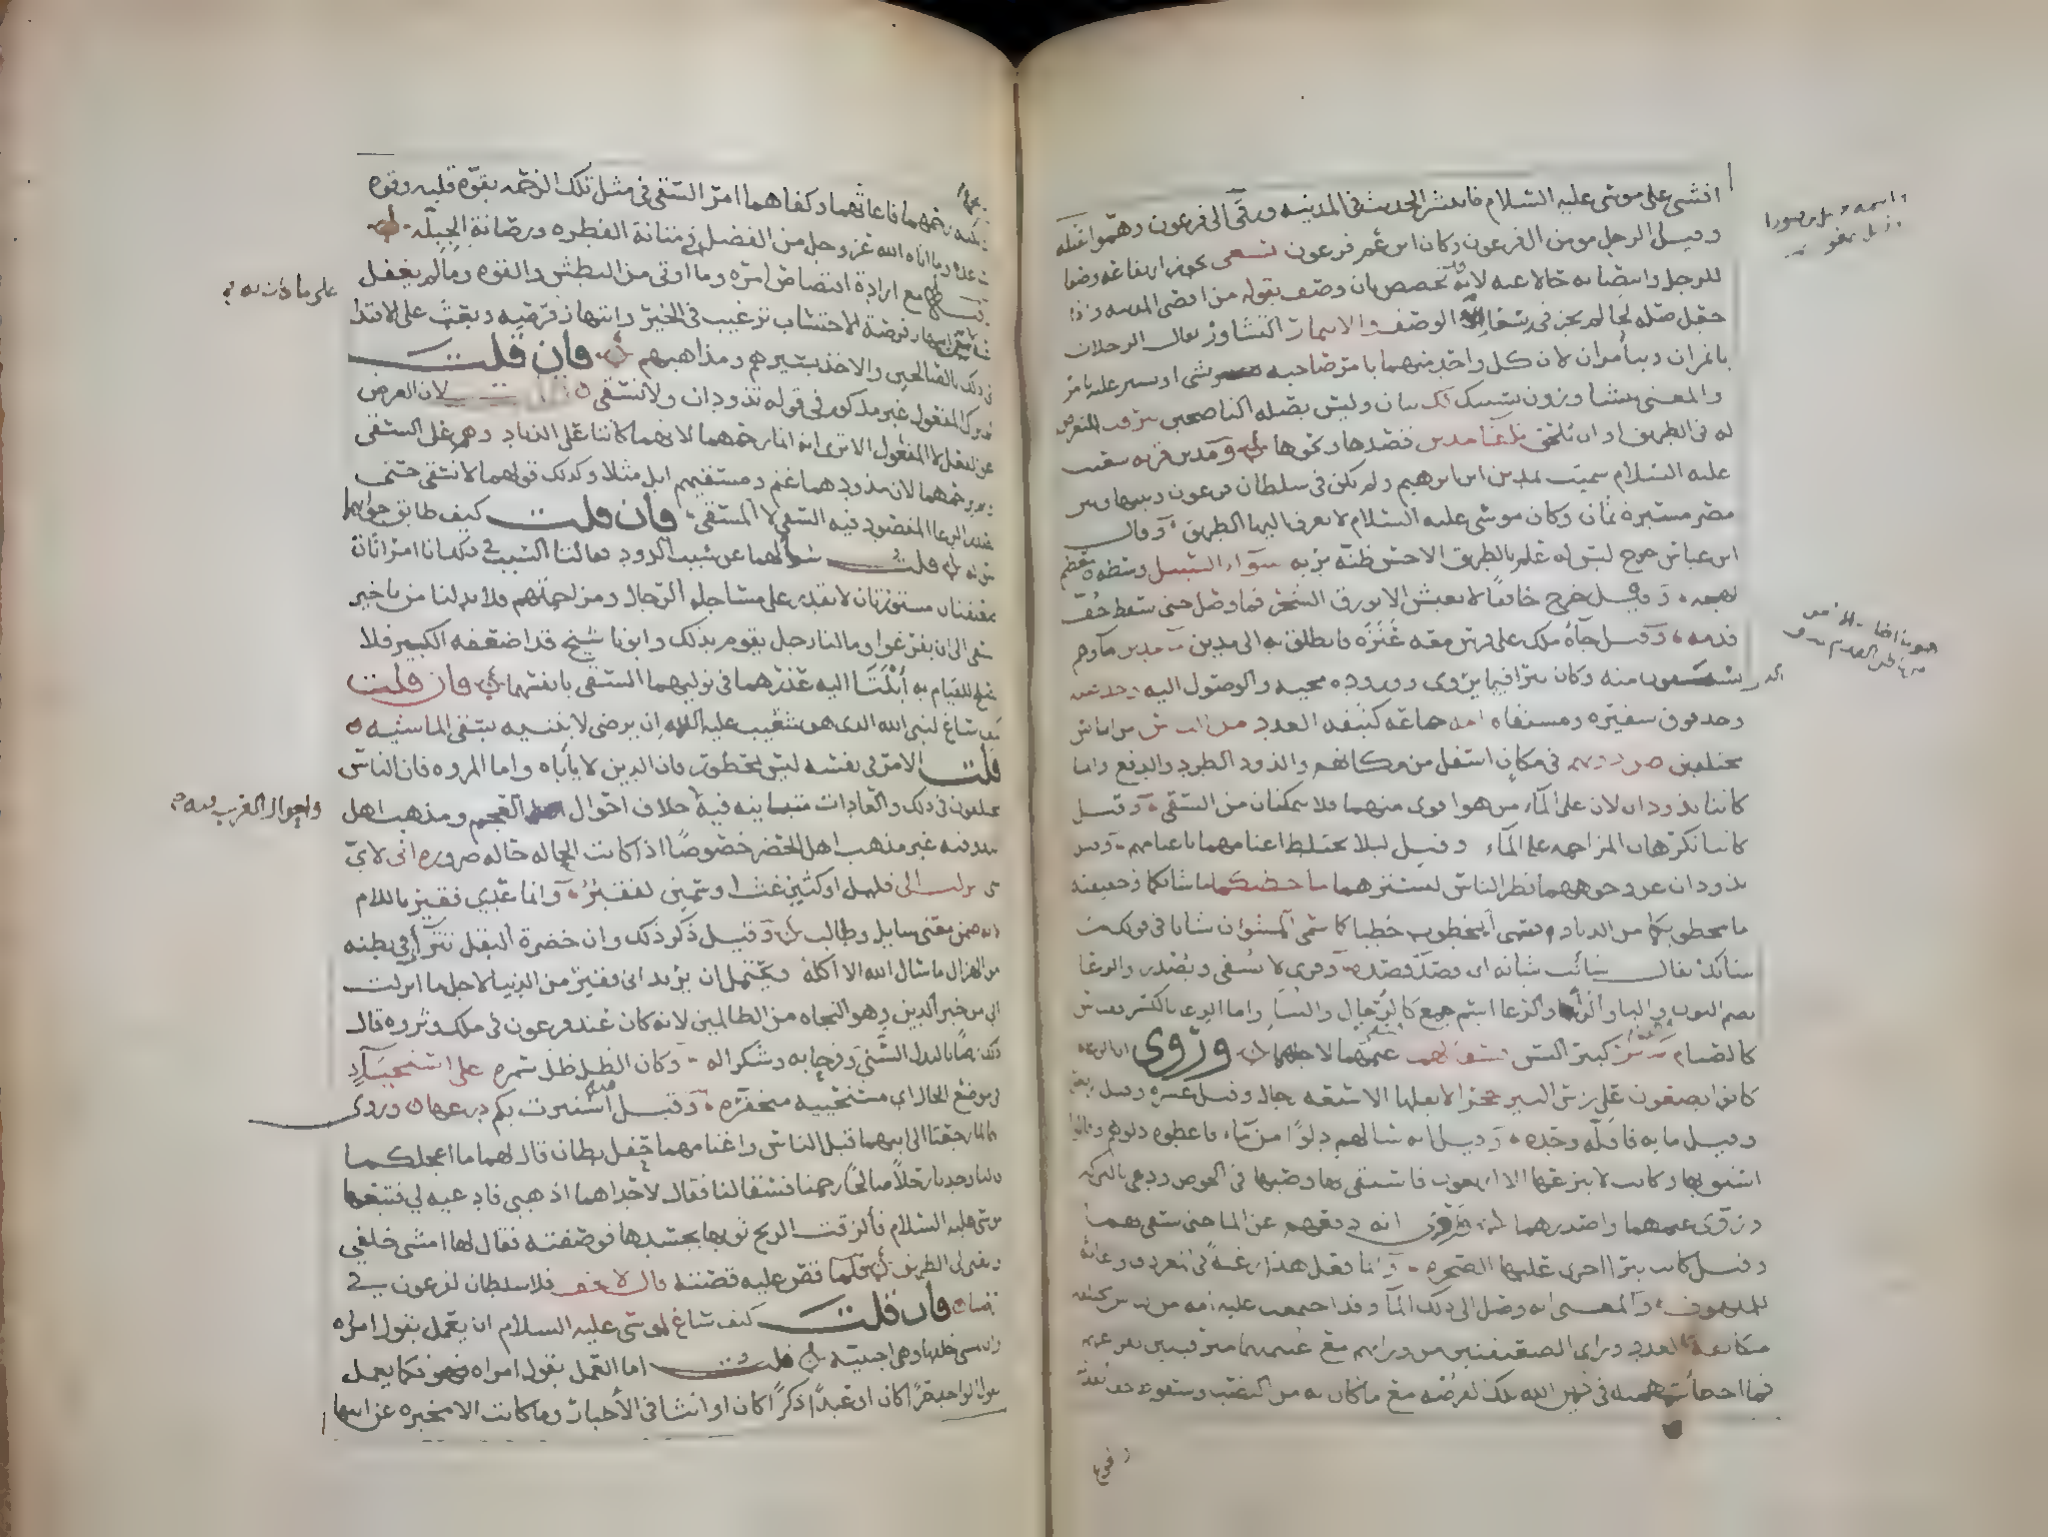 افشى على موسى عليه السلام فانتشر الحديث فى المدينه ورقى الى فرعون وهموا بقتله
وقيل الرجل مومن ال فرعون وكان ابن عم فرعون يسعى يجوز ارتفاعه وصفا
للرجل وانتصابه حالا عنه لانه تخصص بان وصف بقوله من اقصى المدينه واذا
جعل صله لجا لم يجز فى يسعى الا الوصف والايتمار التشاور يقال الرجلان
يأتمران ويتآمران لان كل واحد منهما يامر صاحبه بشى او يشير عليه بامر
والمعنى يتشاورون بسببك لك بيان وليس بصله الناصحين يترقب التعرض
له فى الطريق او ان يلحق تلقا مدين قصدها ونحوها ومدين قريه شعيب
عليه السلام سميت بمدين ابن ابرهيم ولم يكن فى سلطان فرعون وبينها وبين
مصر مسيرة ثمان وكان موسى عليه السلام لا يعرف اليها الطريق وقال
ابن عباس خرج ليس له علم بالطريق الا حسن ظنه بربه سواء السبيل وسطه ومعظم
نهجه وقيل خرج حافيا لا يعيش الا بورق الشجر فما وصل حتى سقط خف
قدمه وقيل جاه ملك على فرس معه عنزه فانطلق به الى مدين ما مدين ماوهم
الذى يستقون منه وكان بيرا فيما يروى ووروده مجيه والوصول اليه وجد عليه
وجد فوق شفيره ومستقاه امه جماعه كثيفه العدد من الناس من اناس
مختلفين من دونهم فى مكان اسفل من مكانهم والذود الطرد والدفع وانما
كانتا تذودان لان على الماء من هو اقوى منهما فلا يتمكنان من السقى وقيل
كانتا تكرهان المزاحمه على الماء وقيل ليلا يختلط اغنامهما باغنامهم وقيل
تذودان عن وجوههما نظر الناس لتسترهما ما خطبكما ما شانكما وحقيقته
ما مخطوبكما من الذياد فسمى المخطوب خطبا كما سمى المشؤون شانا فى قولك ما
شانك يقال شانت شانه اى قصدت قصده وقرى لا نسقى ويصدر والرعا
بضم النون واليا والرا والرعا اسم جمع كالرخال والثنا واما الرعا بالكسر فقياس
كالصيام كبير كبير السن فسقى لهما غنمهما لاجلهما وروى ان الرعاه
كانوا يضعون على راس البير حجرا لا يقله الا سبعه رجال وقيل عشره وقيل اربعون
وقيل مايه فاقله وحده وقيل انه سالهم دلوا من ماء فاعطوه دلوهم وقالوا
استق بها وكانت لا ينزعها الا اربعون فاستقى بها وصبها فى الحوض ودعى بالبركه
وروى غنمهما واصدرهما وروى انه دفعهم عن الما حتى سقى لهما
وقيل كانت بيرا اخرى عليها الصخره وانما فعل هذا رغبة فى المعروف واغاثة
للملهوف والمعنى انه وصل الى ذلك الما وقد اجتمعت عليه امه من الناس كثيفه
متكاثفة العدد وراى الضعيفتين من ورايهم مع غنيمتهما مترقبتين لفراغهم
فما اخطأت همته فى دين الله تلك الفرصه مع ما كان به من النصب وسقوط خف القدم
فرع
الجوع
رحمهما فاغاثهما وكفاهما امر السقى فى مثل تلك الزحمه بقوة قلبه وقوة
ساعده وما اتاه الله عز وجل من الفضل فى متانة الفطره ورصانة الجبله
مع ارادة اقتصاص امره وما اوتى من البطش والقوه وما لم يغفل
على ما كان به
فرصة الاحتساب ترغيب فى الخير وانتهاز فرصه وبعث على الاقتدا
فى ذلك بالصالحين والاخذ بسيرهم ومذاهبهم فان قلت
ترك المفعول غير مذكور فى قوله تذودان ولا نسقى لان الغرض
هو الفعل لا المفعول الا ترى انه انما رحمهما لانهما كانتا على الذياد وهم على السقى
ولم يرحمهما لان مذودهما غنم ومسقيهم ابل مثلا وكذلك قولهما لا نسقى حتى
يصدر الرعا المقصود فيه السقى لا المسقى فان قلت كيف طابق جوابهما
سواله قلت سألهما عن سبب الذود فقالتا السبب فى ذلك انا امراتان
ضعيفتان مستورتان لا نقدر على مساجلة الرجال ومزاحمتهم فلا بد لنا من تاخير
السقى الى ان يفرغوا وما لنا رجل يقوم بذلك وابونا شيخ قد اضعفه الكبر فلا
يصلح للقيام به أبلتا اليه عذرهما فى توليهما السقى بانفسهما فان قلت
كيف ساغ لنبى الله الذى هو شعيب عليه السلام ان يرضى لابنتيه بسقى الماشيه
قلت الامر فى نفسه ليس بمحظور فان الدين لا يأباه واما المروه فان الناس
مختلفون فى ذلك والعادات متباينه فيه خلاف احوال العجم ومذهب اهل
واحوال العرب فيه
البدو فيه غير مذهب اهل الحضر خصوصا اذا كانت الحاله حاله ضروره انى لاى
شى انزلت الى قليل او كثير غث او سمين لفقير وانما عدى فقير باللام
لانه ضمن معنى سايل وطالب وقيل ذكر ذلك وان خضرة البقل تتراأى فى بطنه
من الهزال ما سال الله الا اكلة ويحتمل ان يريد انى فقير من الدنيا لاجل ما انزلت
الى من خير الدين وهو النجاه من الظالمين لانه كان عند فرعون فى ملك وثروه قال
ذلك رضا بالبدل السنى وفرحا به وشكرا له وكان الظل ظل سمره على استحياء
فى موضع الحال اى مستحييه متخفره وقيل استترت بكم درعها وروى
انهما لما رجعتا الى ابيهما قبل الناس واغنامهما حفل بطان قال لهما ما اعجلكما
قالتا وجدنا رجلا صالحا رحمنا فسقى لنا فقال لاحداهما اذهبى فادعيه لى فتبعها
موسى عليه السلام فألزقت الريح ثوبها بجسدها فوصفته فقال لها امشى خلفى
وانعتى لى الطريق فلما قص عليه قصته قال لا تخف فلا سلطان لفرعون فى
ارضنا فان قلت كيف ساغ لموسى عليه السلام ان يعمل بقول امراه
وان يمشى خلفها وهى اجنبيه قلت اما العمل بقول امراه فكما يعمل
بقول الواحد حرا كان او عبدا ذكرا كان او انثى فى الأخبار وما كانت الا مخبره عن ابيها